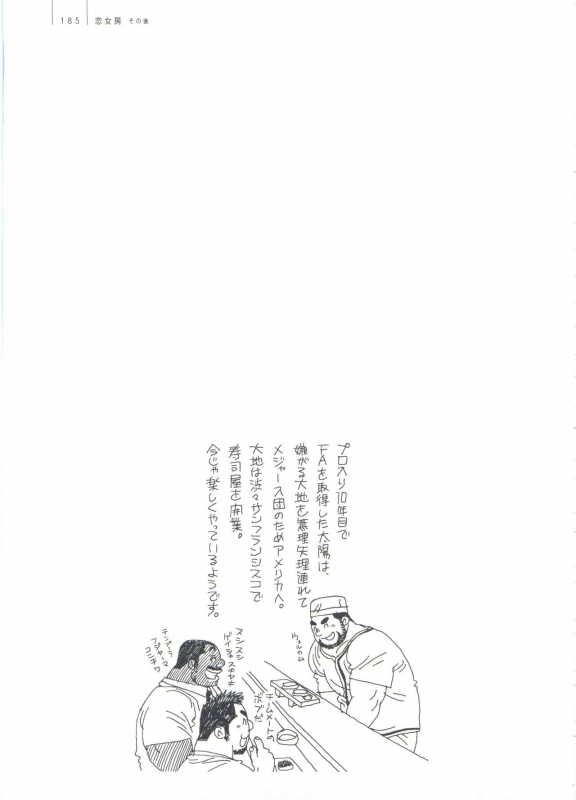 185 恋女房 その後
プロ入り10年目で
FAを取得した太陽は、
嫌がる大地を無理矢理連れて
メジャー入団のためアメリカへ。
大地は渋々サンフランシスコで
寿司屋を開業。
今じゃ楽しくやっているようです。
ウェルカム
スシスシ
ゲイシャスキヤキ
テンプーラ
フジヤーマ
コニチワ
チームメートの
ボブだ